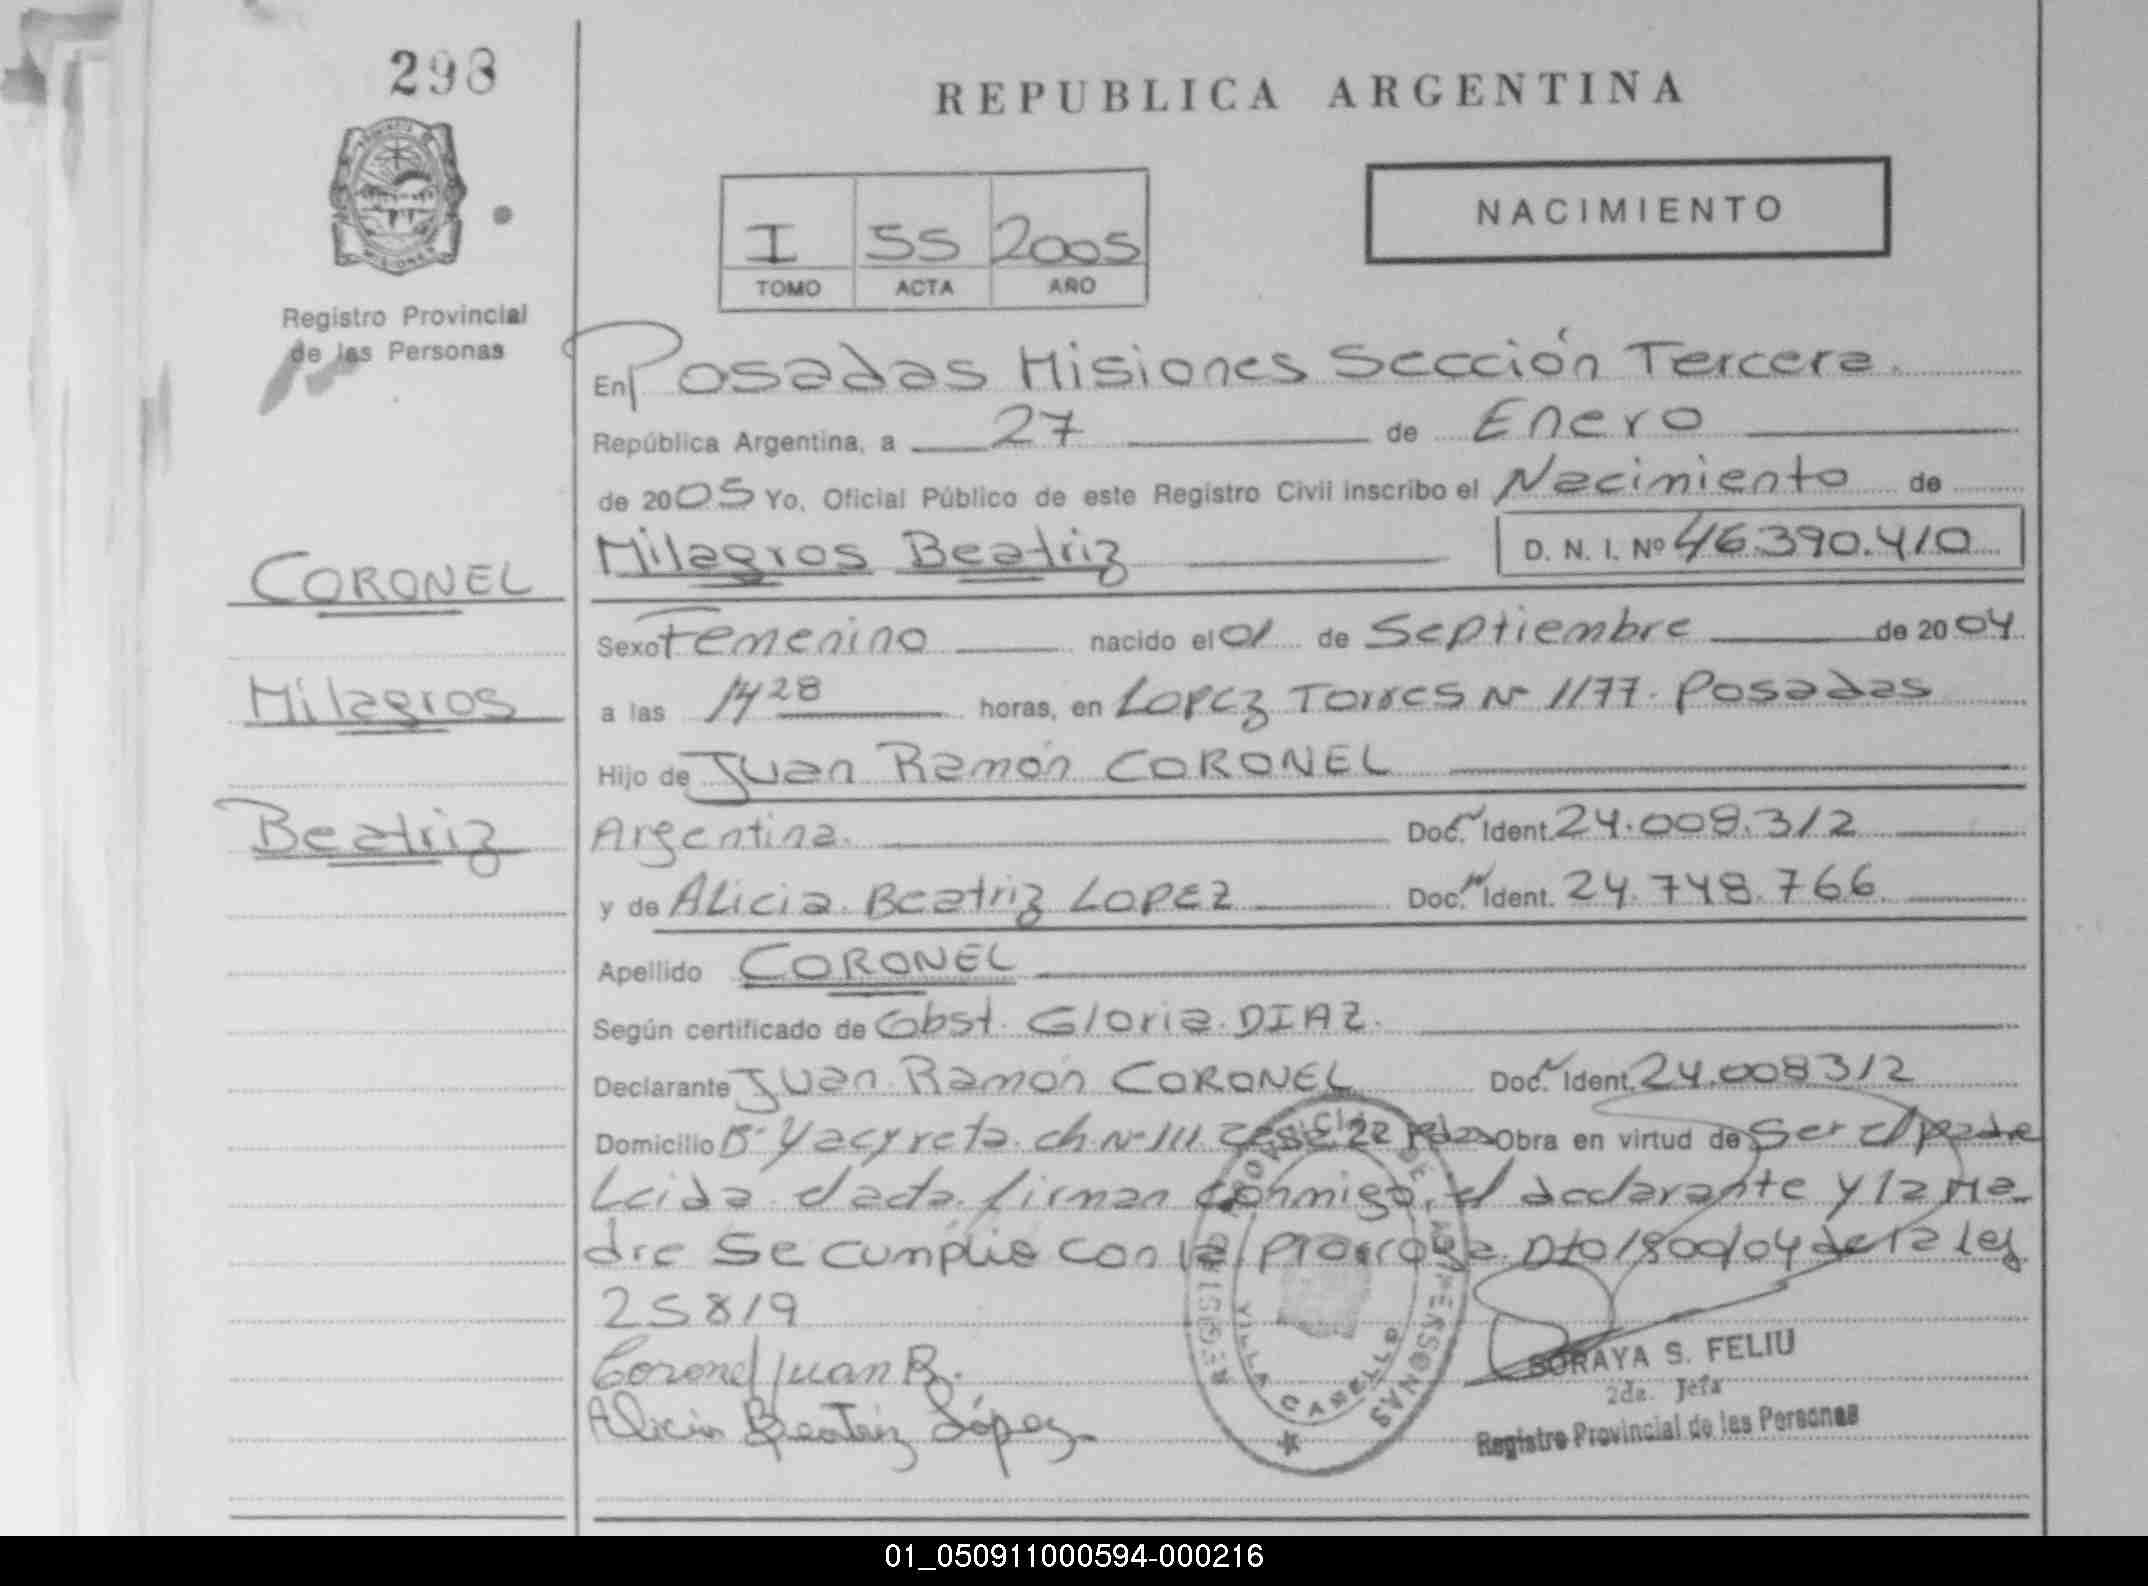 298
REPUBLICA ARGENTINA
NACIMIENTO
I 55 2005
TOMO ACTA AÑO
Registro Provincial
de las Personas
En Posadas Misiones Sección Tercera.
República Argentina, a 27 de Enero
de 2005 Yo, Oficial Público de este Registro Civil inscribo el Nacimiento de
CORONEL
Milagros Beatriz D. N. I. Nº 46.390.410
Sexo Femenino nacido el 01 de Septiembre de 2004
Milagros
a las 14 28 horas, en Lopez Torres Nº 1177. Posadas
Hijo de Juan Ramón CORONEL
Beatriz
Argentina. Doc. N Ident. 24.008.312
y de Alicia Beatriz LOPEZ Doc. N Ident. 24.748.766
Apellido CORONEL
Según certificado de Obst. Gloria DIAZ.
Declarante Juan Ramón CORONEL Doc. N Ident. 24.008312
Domicilio Bº Yacyreta ch. Nº 111 casa 22 Pdas Obra en virtud de Ser el padre
Leida el acta firman conmigo, el declarante y la Ma
dre Se cumplio con la prorroga Dto 1800/04 de la ley
25819
Coronel Juan R.
Alicia Beatriz López
REGISTRO PROVINCIAL DE LAS PERSONAS
VILLA CABELLO
SORAYA S. FELIU
2da. Jefa
Registro Provincial de las Personas
01_050911000594-000216